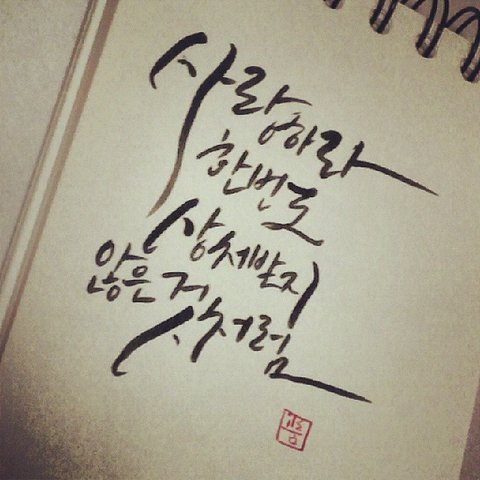 사랑하라
한번도
상처받지
않은 것
처럼